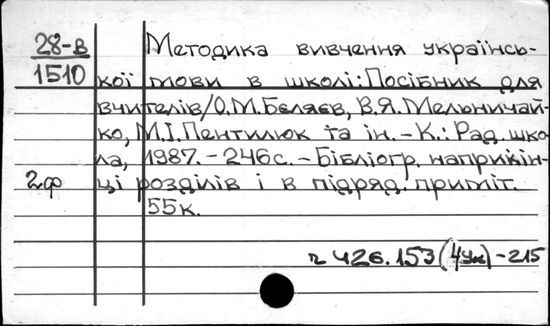 28-в
1510
Методика вивчення українсь-
кої мови в школі: Посібник для
вчителів/О.М.Бєляєв, В.Я.Мельничай-
ко, М.І.Пентилюк та ін. - К.: Рад. шко-
ла, 1987. - 246с. - Бібліогр. наприкін-
2ф
ці розділів і в підряд. приміт.
55к.
ч426.153(4Ук)-215